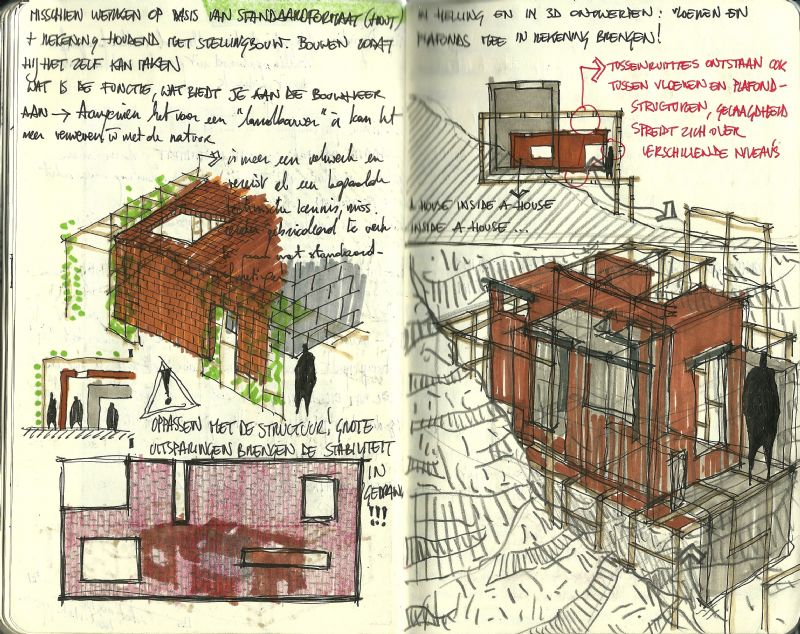 MISSCHIEN WERKEN OP BASIS VAN STANDAARDFORMAAT (HOUT)
+ REKENING HOUDEND MET STELLINGBOUW. BOUWEN ZODAT
HIJ HET ZELF KAN MAKEN
WAT IS DE FUNCTIE, WAT BIEDT JE AAN DE BOUWHEER
AAN → Aangezien het voor een "landbouwer" is kan het
meer verweven met de natuur
is meer een netwerk en
vereist al een bepaalde
technische kennis, miss.
te werk
met standaard-
OPPASSEN MET DE STRUCTUUR! GROTE
UITSPARINGEN BRENGEN DE STABILITEIT
IN
GEDRANG
!!!
IN HELLING EN IN 3D ONTWERPEN: VLOEREN EN
PLAFONDS MEE IN REKENING BRENGEN!
TUSSENRUIMTES ONTSTAAN OOK
TUSSEN VLOEREN EN PLAFOND-
STRUCTUREN, GELAAGDHEID
SPREIDT ZICH OVER
VERSCHILLENDE NIVEAU'S
A HOUSE INSIDE A HOUSE
INSIDE A HOUSE...